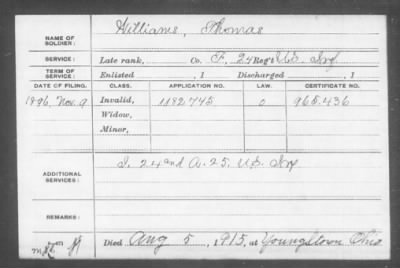 NAME OF SOLDIER: Williams, Thomas
SERVICE: Late rank, Co. F, 24 Reg't U.S. Inf
TERM OF SERVICE: Enlisted , 1 Discharged , 1
DATE OF FILING. CLASS. APPLICATION NO. LAW. CERTIFICATE NO.
1896, Nov. 9 Invalid, 1182745 965.436
Widow,
Minor,
ADDITIONAL SERVICES: 24 and A. 25. U.S. Inf
REMARKS:
Died Aug 5, 1915, at Youngstown Ohio